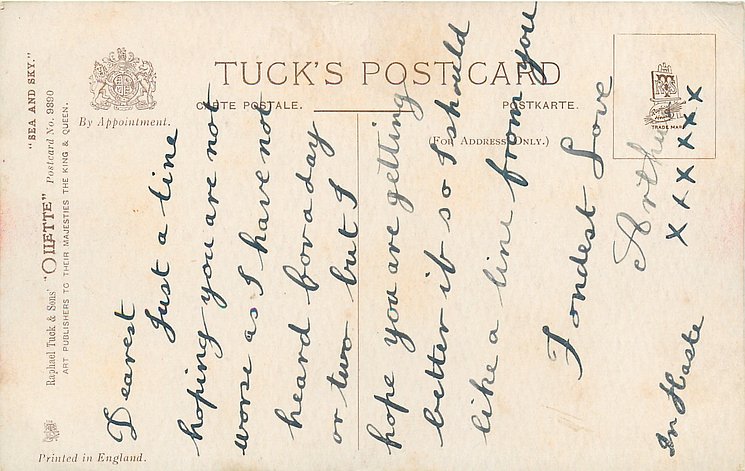 "SEA AND SKY."
Raphael Tuck & Sons' "OILETTE" Postcard No. 9890
ART PUBLISHERS TO THEIR MAJESTIES THE KING & QUEEN.
By Appointment.
TUCK'S POST CARD
CARTE POSTALE.
POSTKARTE.
(FOR ADDRESS ONLY.)
TRADE MARK
Printed in England.
Dearest
Just a line
hoping you are not
worse as I have not
heard for a day
or two but I
hope you are getting
better if so I should
like a line from you
Fondest Love
Arthur
x x x x x x
In Haste